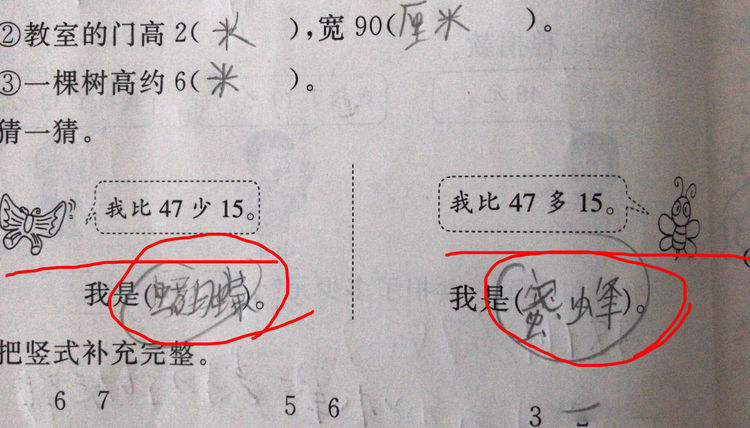 ②教室的门高2(米),宽90(厘米)。
③一棵树高约6(米)。
猜一猜。
我比47少15。
我比47多15。
我是(蝴蝶)。
我是(蜜蜂)。
把竖式补充完整。
6 7
5 6
3